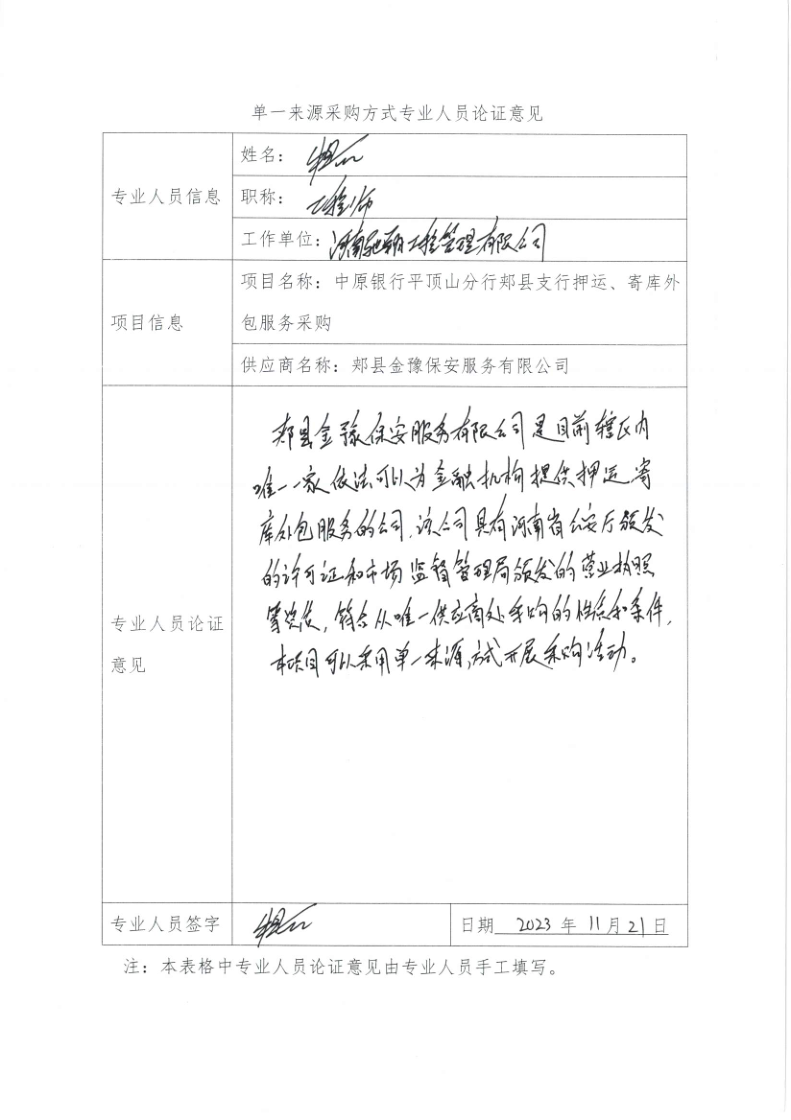 单一来源采购方式专业人员论证意见
专业人员信息
姓名：
职称：工程师
工作单位：河南驰翔工程管理有限公司
项目信息
项目名称：中原银行平顶山分行郏县支行押运、寄库外
包服务采购
供应商名称：郏县金豫保安服务有限公司
专业人员论证
意见
郏县金豫保安服务有限公司是目前辖区内
唯一一家依法可以为金融机构提供押运寄
库外包服务的公司，该公司具有河南省公安厅颁发
的许可证和市场监督管理局颁发的营业执照
等资质，符合从唯一供应商处采购的性质和条件，
本项目可以采用单一来源方式开展采购活动。
专业人员签字
日期 2023 年 11 月 21 日
注：本表格中专业人员论证意见由专业人员手工填写。